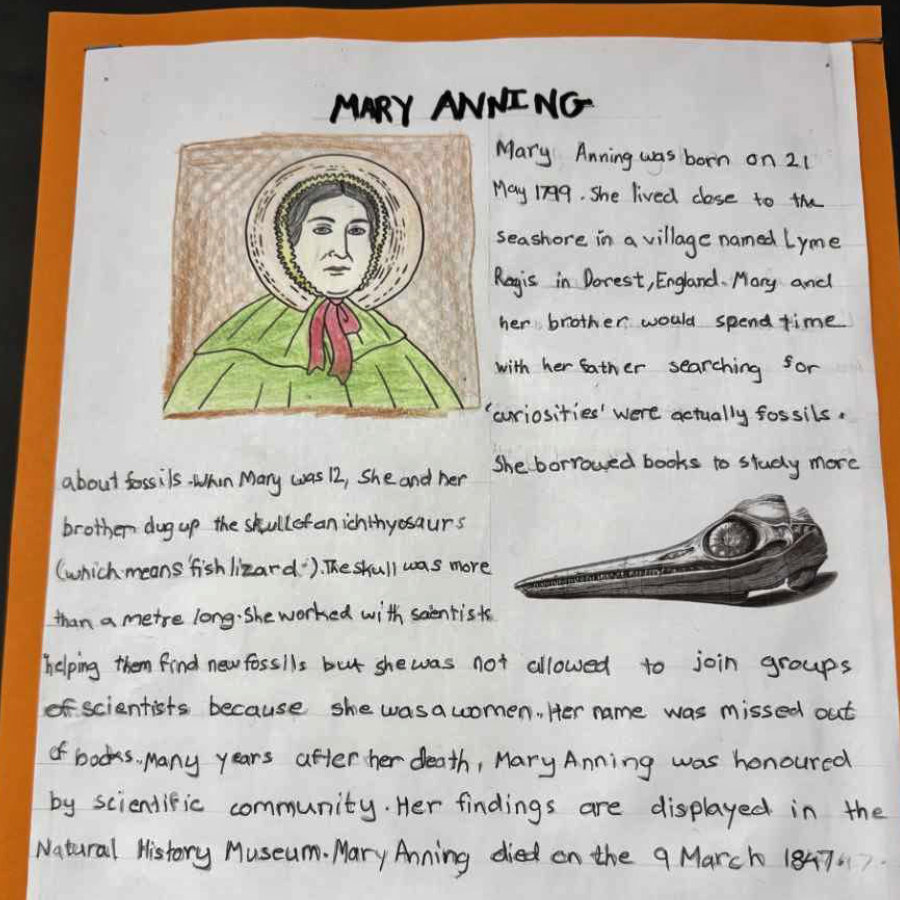 MARY ANNING
Mary Anning was born on 21
May 1799. She lived close to the
seashore in a village named Lyme
Regis in Dorest, England. Mary and
her brother would spend time
with her father searching for
'curiosities' were actually fossils.
She borrowed books to study more
about fossils. When Mary was 12, She and her
brother dug up the skull of an ichthyosaurs
(which means 'fish lizard'). The skull was more
than a metre long. She worked with scientists
helping them find new fossils but she was not allowed to join groups
of scientists because she was a women. Her name was missed out
of books. Many years after her death, Mary Anning was honoured
by scientific community. Her findings are displayed in the
Natural History Museum. Mary Anning died on the 9 March 1847.